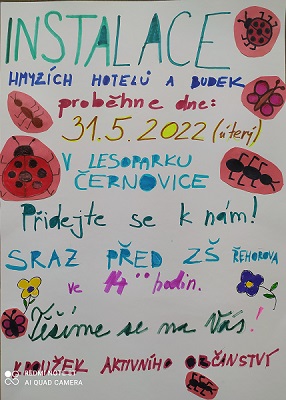 INSTALACE
HMYZÍCH HOTELŮ A BUDEK
proběhne dne:
31.5.2022 (úterý)
V LESOPARKU
ČERNOVICE
Přidejte se k nám!
SRAZ PŘED ZŠ ŘEHOŘOVA
ve 14°° hodin.
Těšíme se na Vás!
KROUŽEK AKTIVNÍHO OBČANSTVÍ
AI QUAD CAMERA